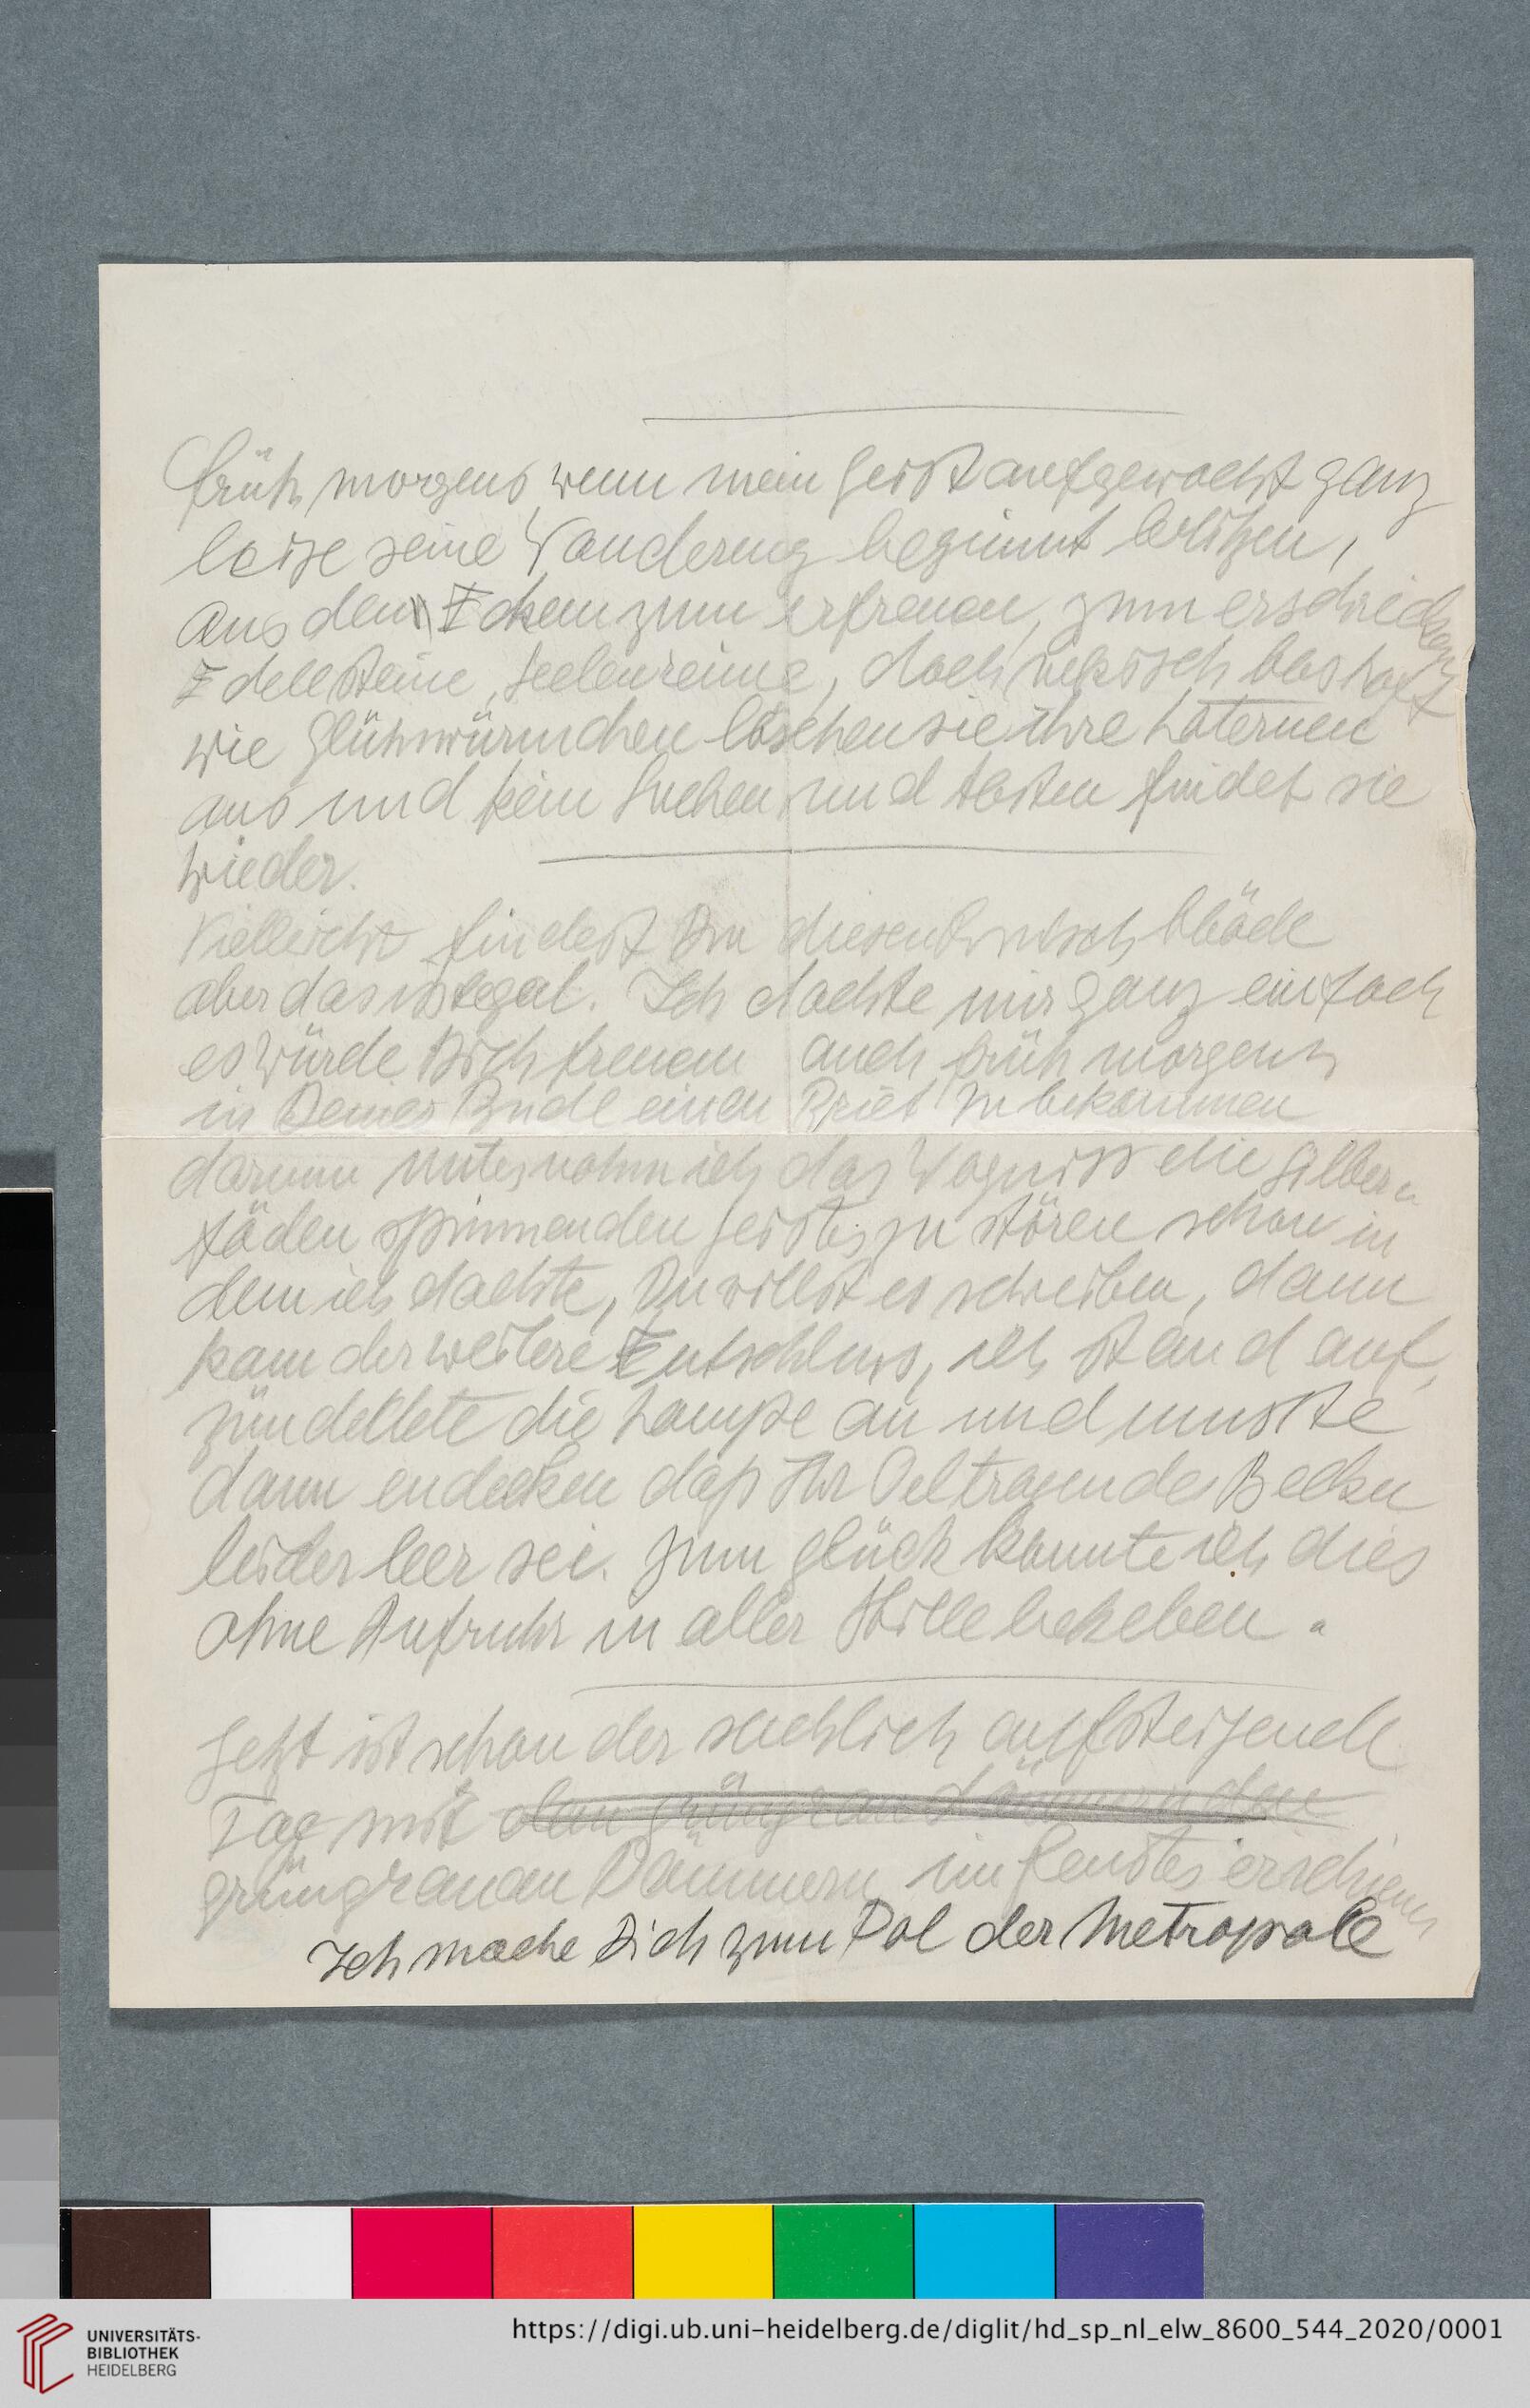 früh morgens, wenn mein Geist aufgewacht ganz
leise seine Wanderung beginnt blitzen,
aus den Ecken zum erfreuen, zum erschrecken
Edellsteine, Seelenreine, doch boshaft
wie Glühwürmchen löschen sie ihre Laternen
aus und kein Suchen und tasten findet sie
wieder.
Vielleicht findest Du diesen blöde
aber das ist egal. Ich dachte mir ganz einfach
es würde Dich freuen auch früh morgens
in Deiner Bude einen Brief zu bekommen
darum unternahm ich das Wagniss die Silber
fäden spinnenden Geister zu stören schon in
dem ich dachte, Du willst es schreiben, dann
kam der weitere Entschluss, ich stand auf,
zündellete die Lampe an und musste
dann endecken daß Ihr Oeltragende Becken
leider leer sei. Zum glück konnte ich dies
ohne Aufruhr in aller Stille beheben.
Jetzt ist schon der aufsteigende
Tag mit den grüngrau dämmernden
grüngrauen Dämmern im Fenster erschienen
Ich mache Dich zum Pol der Metropole
UNIVERSITÄTS-
BIBLIOTHEK
HEIDELBERG
https://digi.ub.uni-heidelberg.de/diglit/hd_sp_nl_elw_8600_544_2020/0001